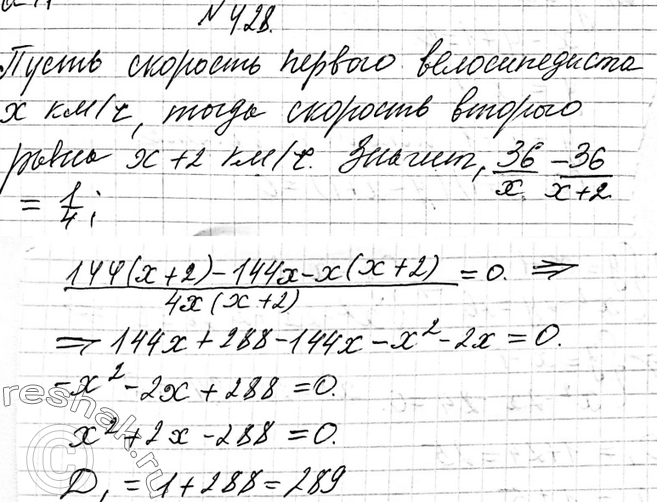 №428.
Пусть скорость первого велосипедиста
x км/ч, тогда скорость второго
равна x+2 км/ч. Значит, 36/x - 36/(x+2)
= 1/4;
(144(x+2)-144x-x(x+2))/(4x(x+2)) = 0. ⇒
⇒ 144x+288-144x-x²-2x=0.
-x²-2x+288=0.
x²+2x-288=0.
D₁=1+288=289
reshak.ru
©